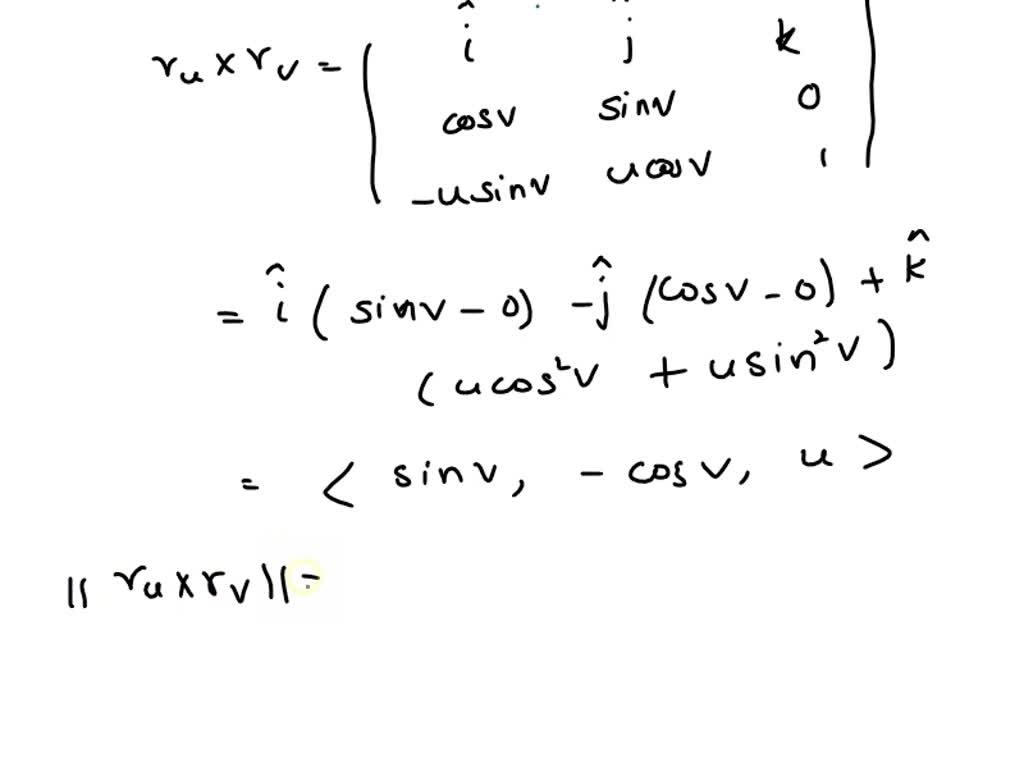 r_u × r_v = | î ĵ k
cosv sinv 0
-usinv ucosv 1 |
= î ( sinv - 0) - ĵ (cosv - 0) + k̂
(ucos²v + usin²v)
= < sinv, - cosv, u >
|| r_u × r_v || =